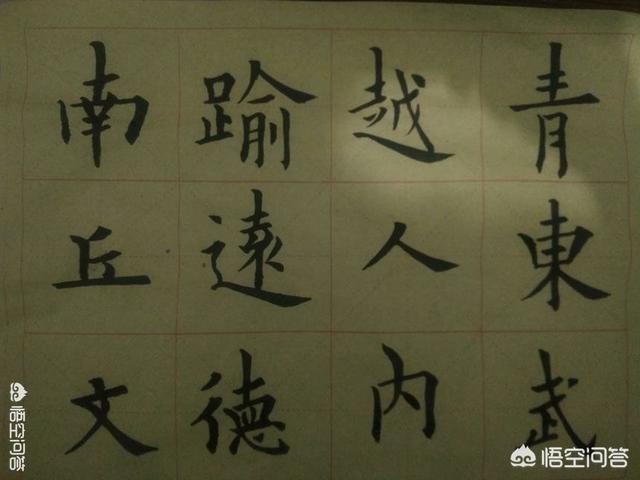 青東武
越人内
踰遠德
南丘文
悟空问答
悟空问答